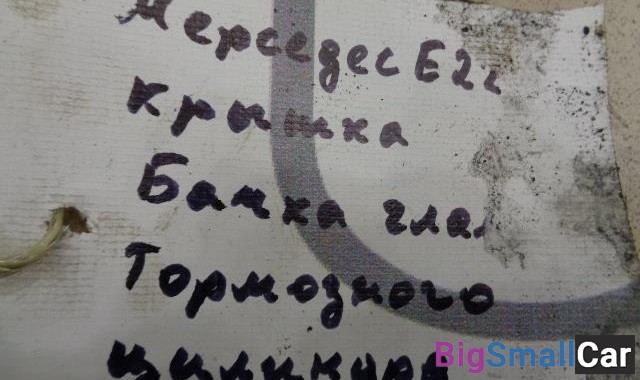 Мерседес Е22
крышка
Банка глав
Тормозного
цилиндра
BigSmallCar